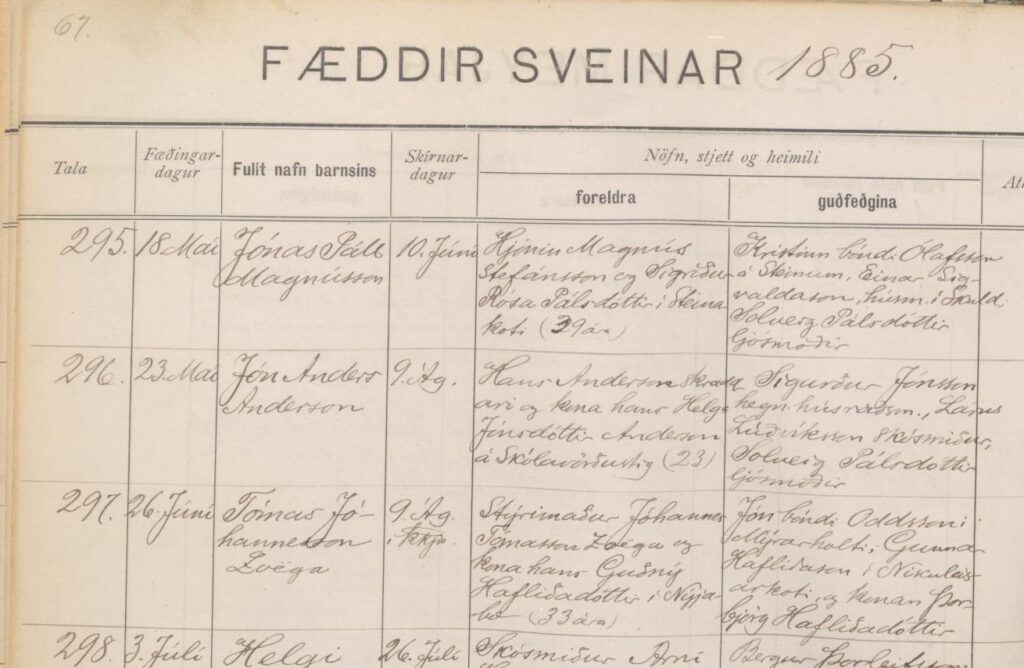 67.
FÆDDIR SVEINAR 1885.
Tala
Fæðingar-
dagur
Fullt nafn barnsins
Skírnar-
dagur
Nöfn, stjett og heimili
foreldra
guðfeðgina
Ath
295. 18 Mai
Jónas Páll
Magnússon
10. Júni
Hjónin Magnús
Stefánsson og Sigríður
Rósa Pálsdóttir í Steina
koti (39 ára)
Kristinn bóndi Ólafsson
á Steinum. Einar Sig-
valdason, húsm. í Skuld
Solveig Pálsdóttir
ljósmóðir
296. 23. Mai
Jón Anders
Anderson
9. Ág.
Hans Anderson skradd
ari og kona hans Helga
Jónsdóttir Anderson
á Skólavörðustíg (23)
Sigurður Jónsson
hegn. húsráðsm., Lárus
Lúðvíksson skósmiður,
Solveig Pálsdóttir
ljósmóðir
297. 26. Júní
Tómas Jó-
hannesson
Zoëga
9. Ág.
í kkju.
Stýrimaður Jóhannes
Tómasson Zoëga og
kona hans Guðný
Hafliðadóttir í Nýja-
bæ (33 ára)
Jón bóndi Oddsson í
Mýrarholti, Gunnar
Hafliðason í Nikulás-
arkoti, og konan Þor-
björg Hafliðadóttir
298. 3. Júlí
Helgi
26. Júlí
Skósmiður Arni
Bergur Þorleifsson